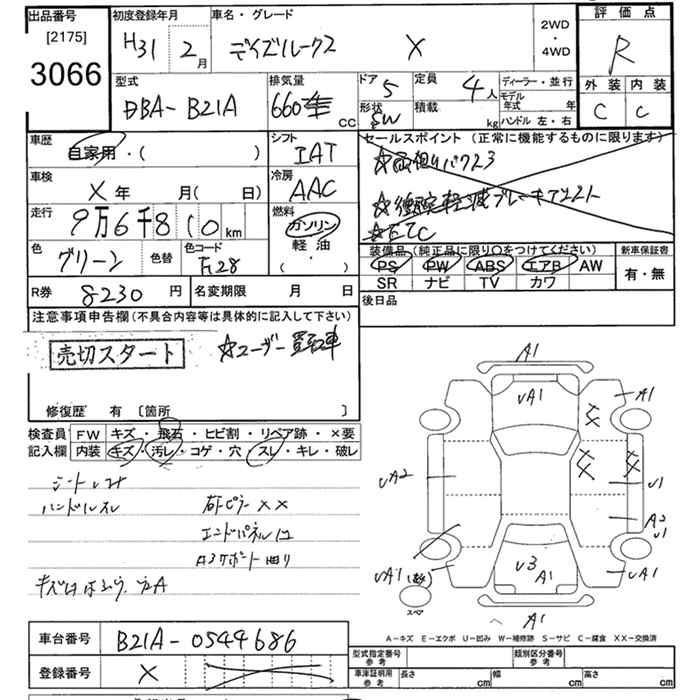 出品番号
[2175]
3066
初度登録年月
H31 年 2 月
車名・グレード
デイズルークス X
2WD
・
4WD
評価点
R
外装 内装
C C
型式
DBA-B21A
排気量
660 CC
ドア 5
形状 SW
定員 4人
積載 kg
ディーラー・並行
モデル年式 年式
ハンドル 左・右
車歴
自家用・( )
シフト
IAT
セールスポイント (正常に機能するものに限ります)
☆ETC
車検
X 年 月( 日)
冷房
AAC
走行
9万6千810 km
燃料
ガソリン
軽油
( ・ )
色
グリーン
色替
色コード
装備品 (純正品に限り〇をつけてください)
PS PW ABS エアB AW
SR ナビ TV カワ
新車保証書
有・無
R券 8230 円
名変期限 月 日
後日品
注意事項申告欄 (不具合内容等は具体的に記入して下さい)
売切スタート
☆ユーザー買取車
修復歴 有 [箇所 ]
検査員記入欄
FW キズ・飛石・ヒビ割・リペア跡・×要
内装 キズ・汚レ・コゲ・穴・スレ・キレ・破レ
ハンドルスレ
右Fピラー XX
エンドパネル
A1
UA1
A1
UA2
U1
A2
U1
UA1
U3
A1
UA1
A1
スペア
A-キズ E-エクボ U-凹み W-補修跡 S-サビ C-腐食 XX-交換済
車台番号 B21A-0544686
登録番号 X
型式指定番号 参考
類別区分番号 参考
車庫証明用 参考 長さ cm 幅 cm 高さ cm